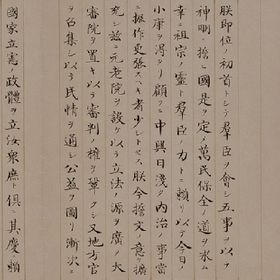 朕即位ノ初首トシテ群臣ヲ會シ五事ヲ以
神明ニ誓ヒ國是ヲ定メ萬民保全ノ道ヲ求ム
幸ニ祖宗ノ靈ト群臣ノ力トニ賴リ以テ今日
小康ヲ得タリ顧ニ中興日淺ク内治ノ事當
ニ振作更張スヘキ者少シトセス朕今誓文ノ意ヲ擴
充シ茲ニ元老院ヲ設ケ以テ立法ノ源ヲ廣メ大
審院ヲ置キ以テ審判ノ權ヲ鞏クシ又地方官
ヲ召集シ以テ民情ヲ通シ公益ヲ圖リ漸次ニ
國家立憲ノ政體ヲ立テ汝衆庶ト俱ニ其慶ニ賴